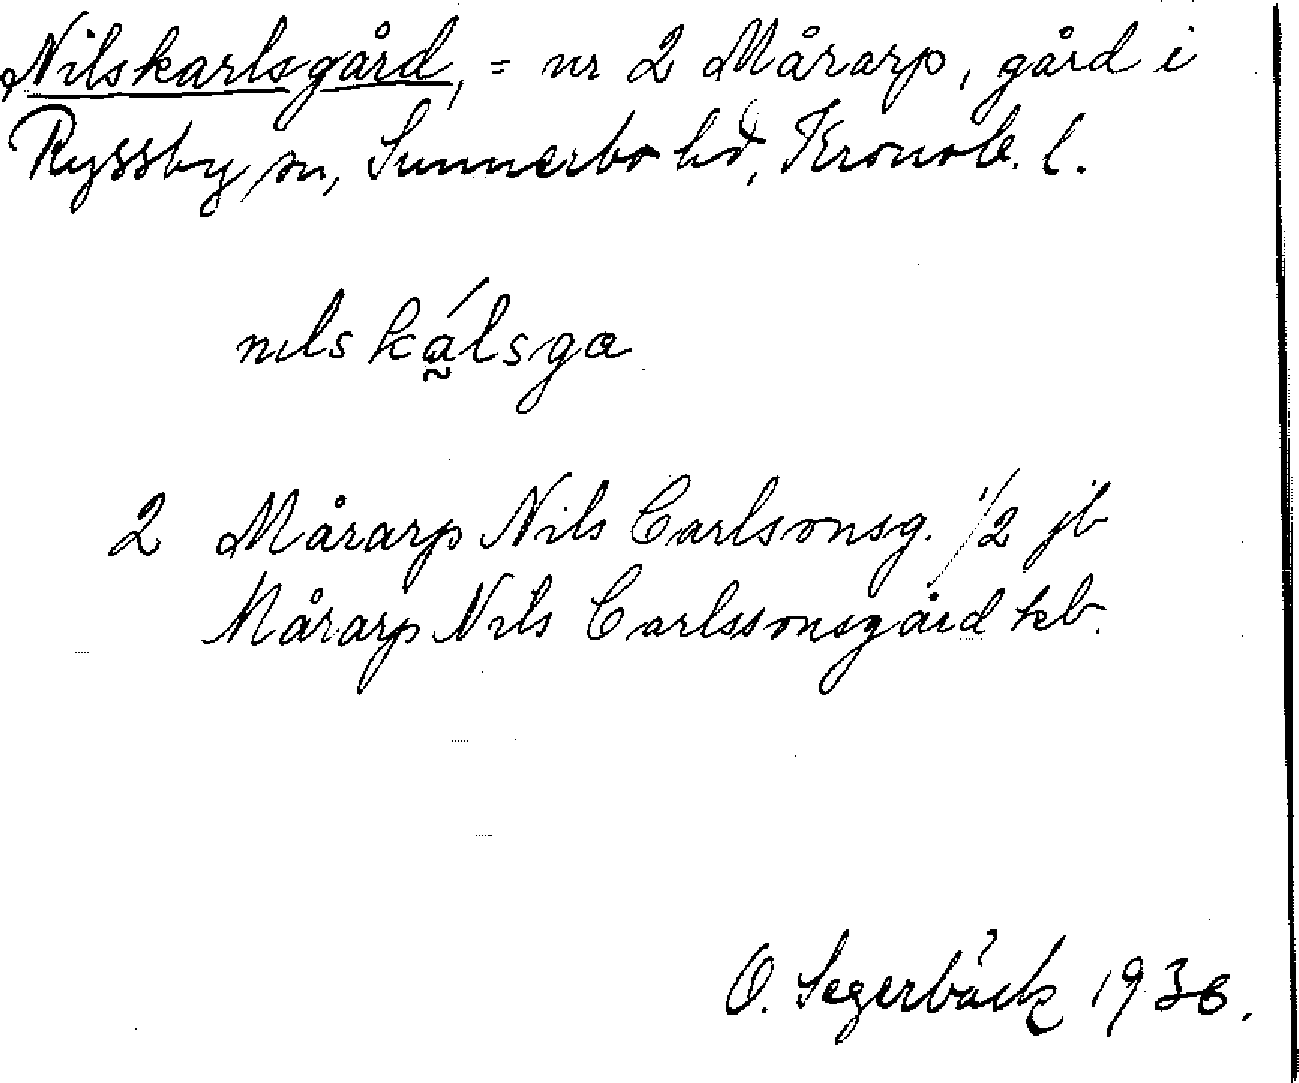 Nilskarlsgård, = nr 2 Mårarp, gård i
Ryssby sn, Sunnerbo hd, Kronob. l.
nɪls kálsga
2 Mårarp Nils Carlsonsg. 1/2 jb
Mårarp Nils Carlssonsgård kb.
O. Segerbäck 1936.